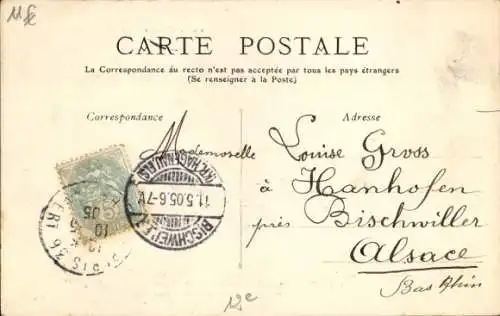 CARTE POSTALE
La Correspondance au recto n'est pas acceptée par tous les pays étrangers
(Se renseigner à la Poste)
Correspondance
Adresse
Mademoselle
Louise Gross
à Hanhofen
près Bischwiller
Alsace
Bas Rhin
BISCHWEILER
11.5.05.6-7
(KR. HAGENAU ELS)
PARIS 36
10
05
12e